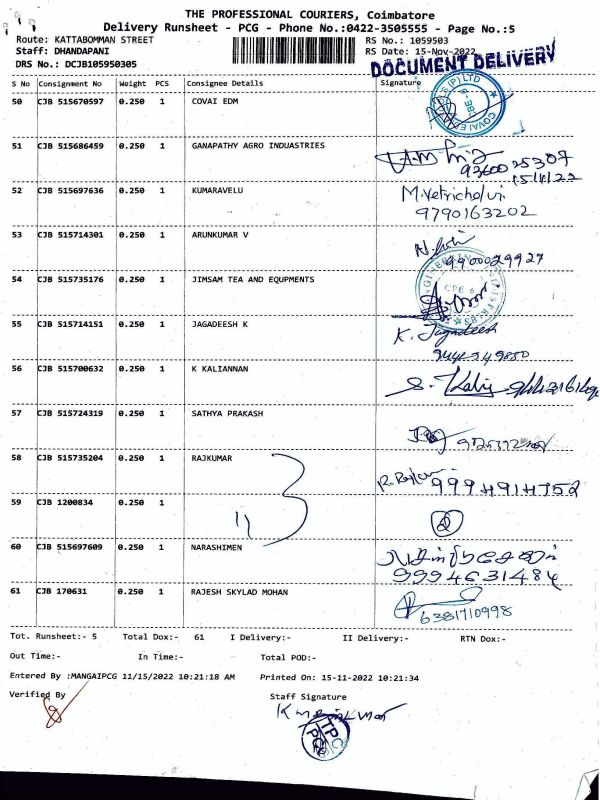 THE PROFESSIONAL COURIERS, Coimbatore
Delivery Runsheet - PCG - Phone No.:0422-3505555 - Page No.:5
Route: KATTABOMMAN STREET
RS No.: 1059503
Staff: DHANDAPANI
RS Date: 15-Nov-2022
DRS No.: DCJB105950305
DOCUMENT DELIVERY
S No Consignment No Weight PCS Consignee Details Signature
50 CJB 515670597 0.250 1 COVAI EDM
51 CJB 515686459 0.250 1 GANAPATHY AGRO INDUASTRIES
15/11/22
52 CJB 515697636 0.250 1 KUMARAVELU M.Vetrichelvi
9790163202
53 CJB 515714301 0.250 1 ARUNKUMAR V
9900029927
54 CJB 515735176 0.250 1 JIMSAM TEA AND EQUPMENTS
55 CJB 515714151 0.250 1 JAGADEESH K K. Jagadeesh
56 CJB 515700632 0.250 1 K KALIANNAN
57 CJB 515724319 0.250 1 SATHYA PRAKASH
58 CJB 515735204 0.250 1 RAJKUMAR
59 CJB 1200834 0.250 1
60 CJB 515697609 0.250 1 NARASHIMEN
9994631484
61 CJB 170631 0.250 1 RAJESH SKYLAD MOHAN
6381710998
Tot. Runsheet:- 5 Total Dox:- 61 I Delivery:- II Delivery:- RTN Dox:-
Out Time:- In Time:- Total POD:-
Entered By :MANGAIPCG 11/15/2022 10:21:18 AM Printed On: 15-11-2022 10:21:34
Verified By Staff Signature